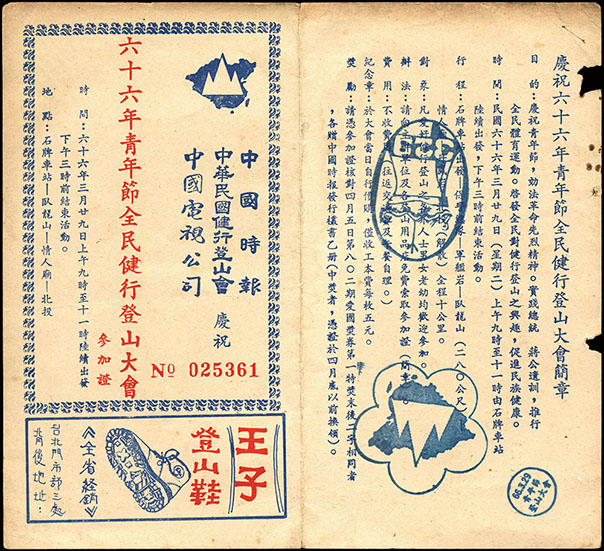 慶祝六十六年青年節全民健行登山大會簡章
目　的:慶祝青年節,効法革命先烈精神。實踐總統　蔣公遺訓,推行
全民體育運動。啓發全民對健行登山之興趣,促進民族健康。
時　間:民國六十六年三月廿九日(星期二)上午九時至十一時由石牌車站
陸續出發,下午三時前結束活動。
行　程:石牌車站出發—軍艦岩—臥龍山(二八〇公尺)
情人(解散)全程十公里。
對　象:凡愛好健行登山之人士男女老幼均歡迎參加。
辦　法:請向主單位及各登山用品免費索取參加證(簡章)。
費　用:不收費用(往返交自理。)
紀念章:於大會當日自行備購,僅收工本費每枚五元。
獎　勵:請憑參加證核對四月五日第八〇二期愛國獎券第一特獎末後二字相同者
,各贈中國時報發行書乙冊(中獎者,憑證於四月底以前換領)。
66.3.29
青年節
登山大會
中國時報
中華民國健行登山會　慶祝
中國電視公司
六十六年青年節全民健行登山大會
參加證
時　間:六十六年三月廿九日上午九時至十一時陸續出發
下午三時前結束活動。
地　點:石牌車站—臥龍山—情人廟—北投
No 025361
王子
登山鞋
《全省經銷》
台北門市部三處
背後地址: